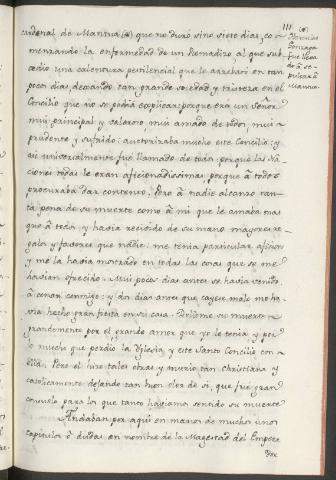 111
cardenal de Mantua (*) que no duró sino siete dias, co-
menzando la enfermedad de un Romadizo, al que sub-
cedio una calentura pestilencial que le arrebató en tan
pocos dias, dejando tan grande soledad y tristeza en el
Concilio que no se podia explicar; porque era un Señor
mui principal y valeroso, mui amado de todos, mui
prudente y sufrido: auctorizaba mucho este Concilio; y
asi universalmente fue llamado de todos, porque las Na-
ciones todas le eran aficionadissimas, porque à todos
procuraba dar contento. Pero à nadie alcanzo tan-
ta pena de su muerte como à mi que le amaba mas
que à todos, y havia recivido de su mano mayores re-
galos y favores que nadie: me tenia particular aficion
y me la havia mostrado en todas las cosas que se me
havian ofrecido. Mui pocos dias antes se havia venido
à cenar conmigo; y dos dias antes que cayese malo me ha-
via hecho gran fiesta en su casa. Doliome su muerte
grandemente por el grande amor que yo le tenia y por
lo mucho que perdio la Yglesia y este Santo Concilio con
ella. Pero el hizo tales obras y murio tan Christiana y
catolicamente dejando tan buen olor de sí, que fue gran
consuelo para los que tanto haviamos sentido su muerte
Andaban por aqui en manos de muchos unos
capitulos ò dudas en nombre de la Magestad del Empera
dor
(*)
Hercules
Gonzaga
fue lleva
do à se-
pultar à
Mantua.